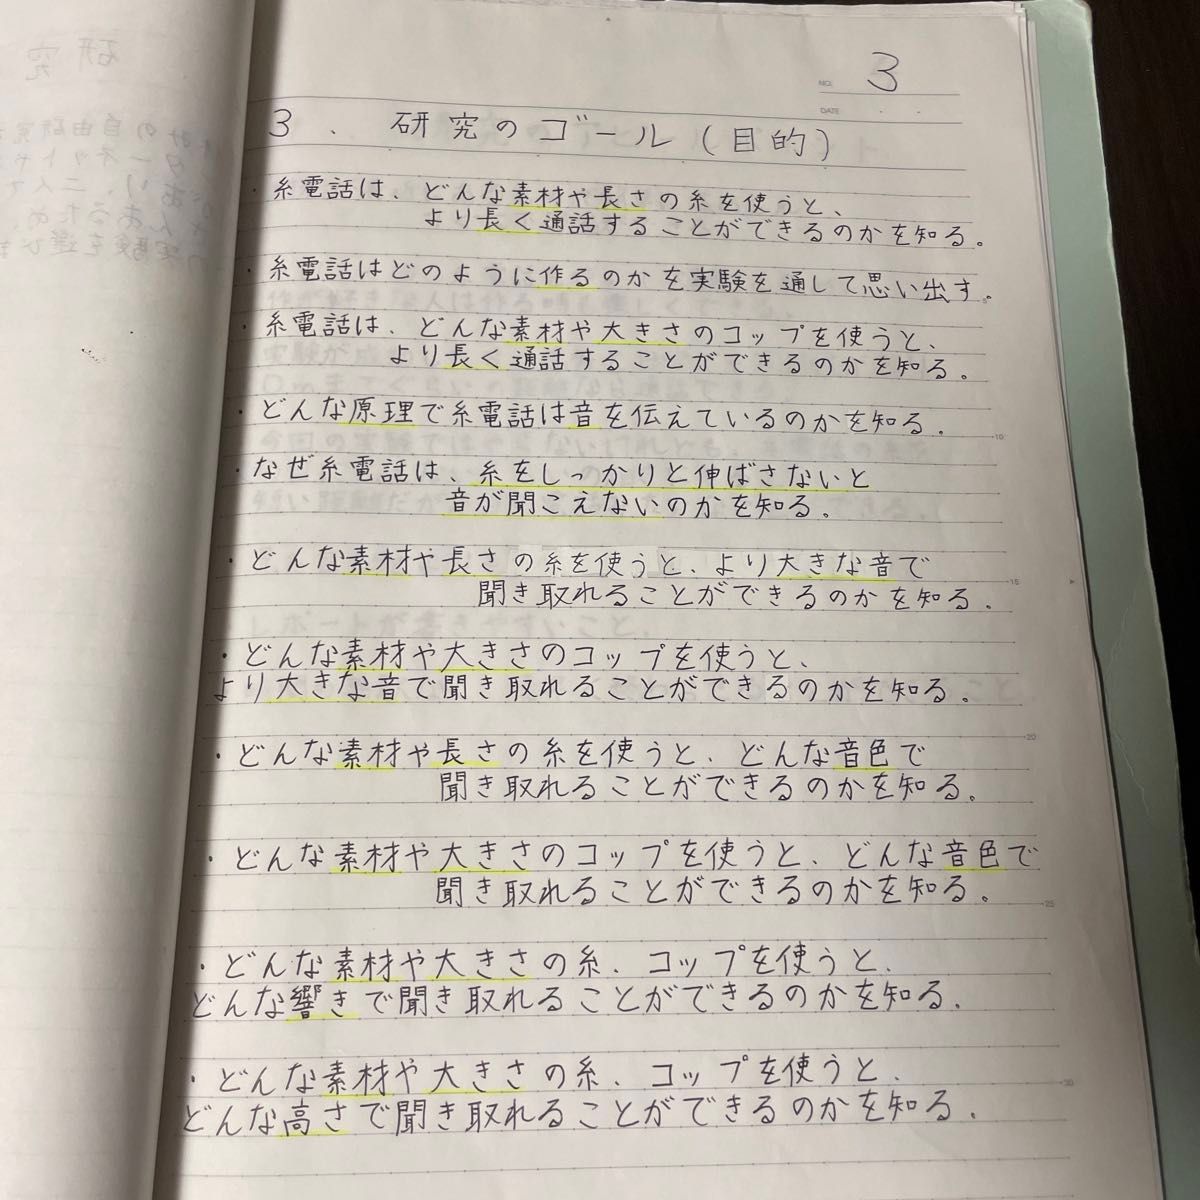 NO. 3
DATE
3. 研究のゴール(目的)
・糸電話は、どんな素材や長さの糸を使うと、
より長く通話することができるのかを知る。
・糸電話はどのように作るのかを実験を通して思い出す。
・糸電話は、どんな素材や大きさのコップを使うと、
より長く通話することができるのかを知る。
・どんな原理で糸電話は音を伝えているのかを知る。
・なぜ糸電話は、糸をしっかりと伸ばさないと
音が聞こえないのかを知る。
・どんな素材や長さの糸を使うと、より大きな音で
聞き取れることができるのかを知る。
・どんな素材や大きさのコップを使うと、
より大きな音で聞き取れることができるのかを知る。
・どんな素材や長さの糸を使うと、どんな音色で
聞き取れることができるのかを知る。
・どんな素材や大きさのコップを使うと、どんな音色で
聞き取れることができるのかを知る。
・どんな素材や大きさの糸、コップを使うと、
どんな響きで聞き取れることができるのかを知る。
・どんな素材や大きさの糸、コップを使うと、
どんな高さで聞き取れることができるのかを知る。